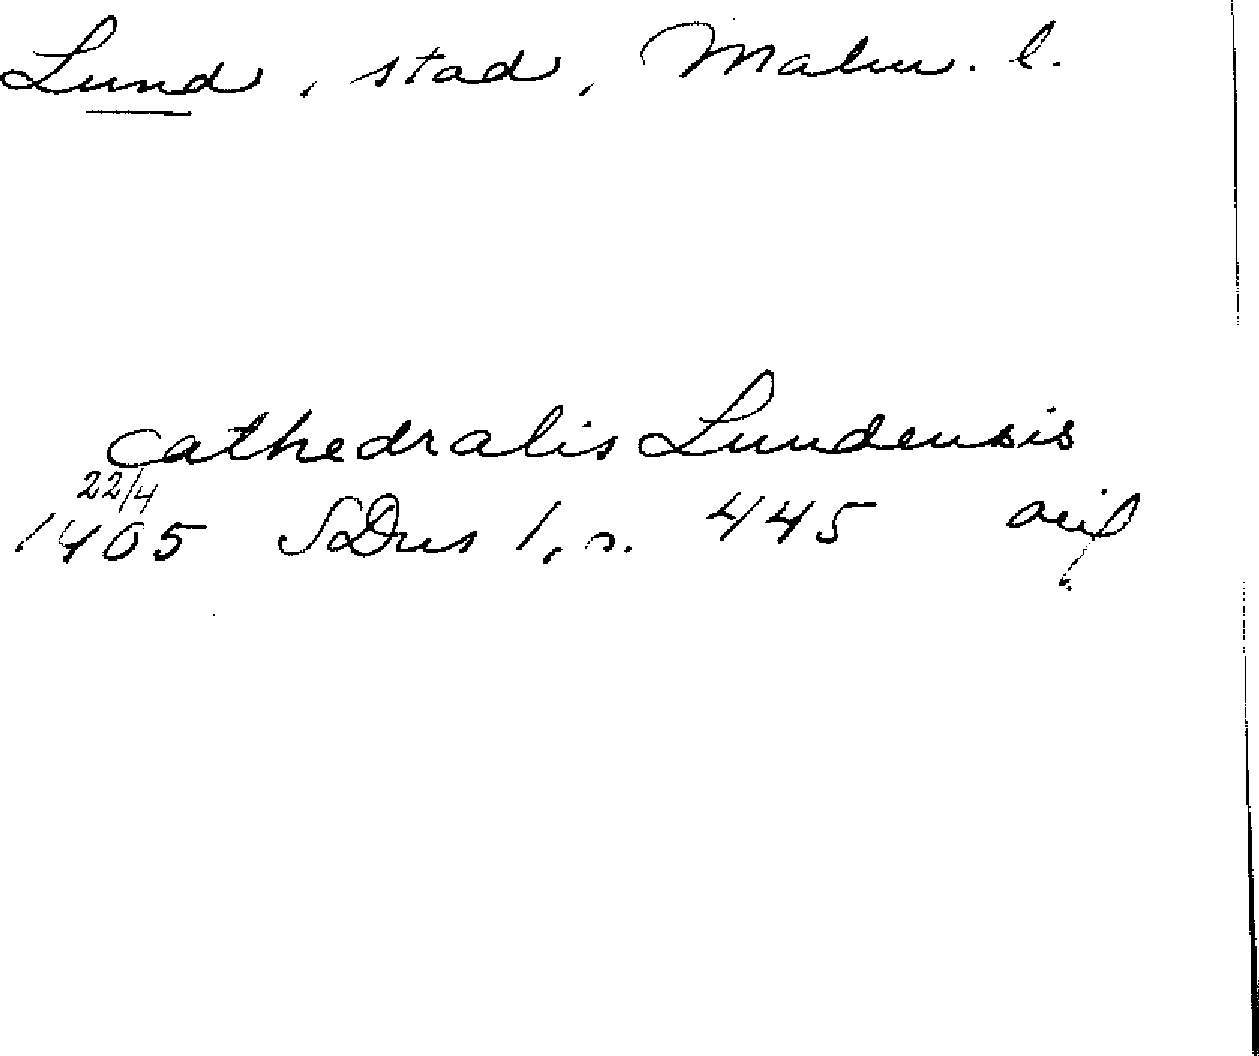 Lund, stad, Malm. l.
cathedralis Lundensis
22/4
1405 SDns 1, s. 445 avs